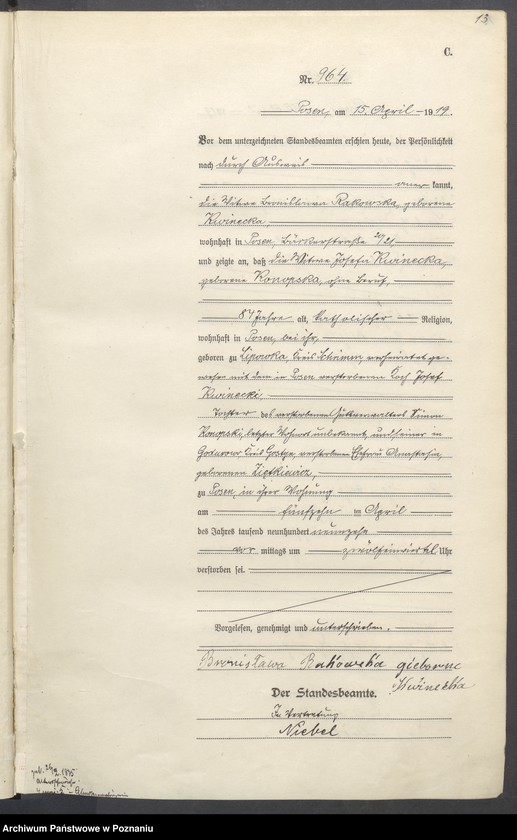 13
C.
Nr. 964.
Posen, am 15. April 1919.
Vor dem unterzeichneten Standesbeamten erschien heute, der Persönlichkeit
nach durch Ausweis
aner kannt,
die Witwe Bronislawa Rakowska, geborene
Kwinecka,
wohnhaft in Posen, Bäckerstraße 20/21
und zeigte an, daß die Witwe Josefa Kwinecka,
geborene Konopska, ohne Beruf,
84 Jahre alt, katholischer Religion,
wohnhaft in Posen, bei ihr,
geboren zu Lipowka, Kreis Schrimm, verheiratet ge-
wesen mit dem in Posen verstorbenen Koch Josef
Kwinecki,
Tochter des verstorbenen Gutsverwalters Simon
Konopski, letzter Wohnort unbekannt, und seiner in
Godurowo Kreis Gostyn, verstorbenen Ehefrau Anastasia,
geborenen Zietkiewicz,
zu Posen in ihrer Wohnung
am fünfzehn ten April
des Jahres tausend neunhundert neunzehn
vor mittags um zwölfeinviertel Uhr
verstorben sei.
Vorgelesen, genehmigt und unterschrieben.
Bronisława Rakowska gieborene
Kwinecka
Der Standesbeamte.
In Vertretung
Niebel
geb.
Archiwum Państwowe w Poznaniu